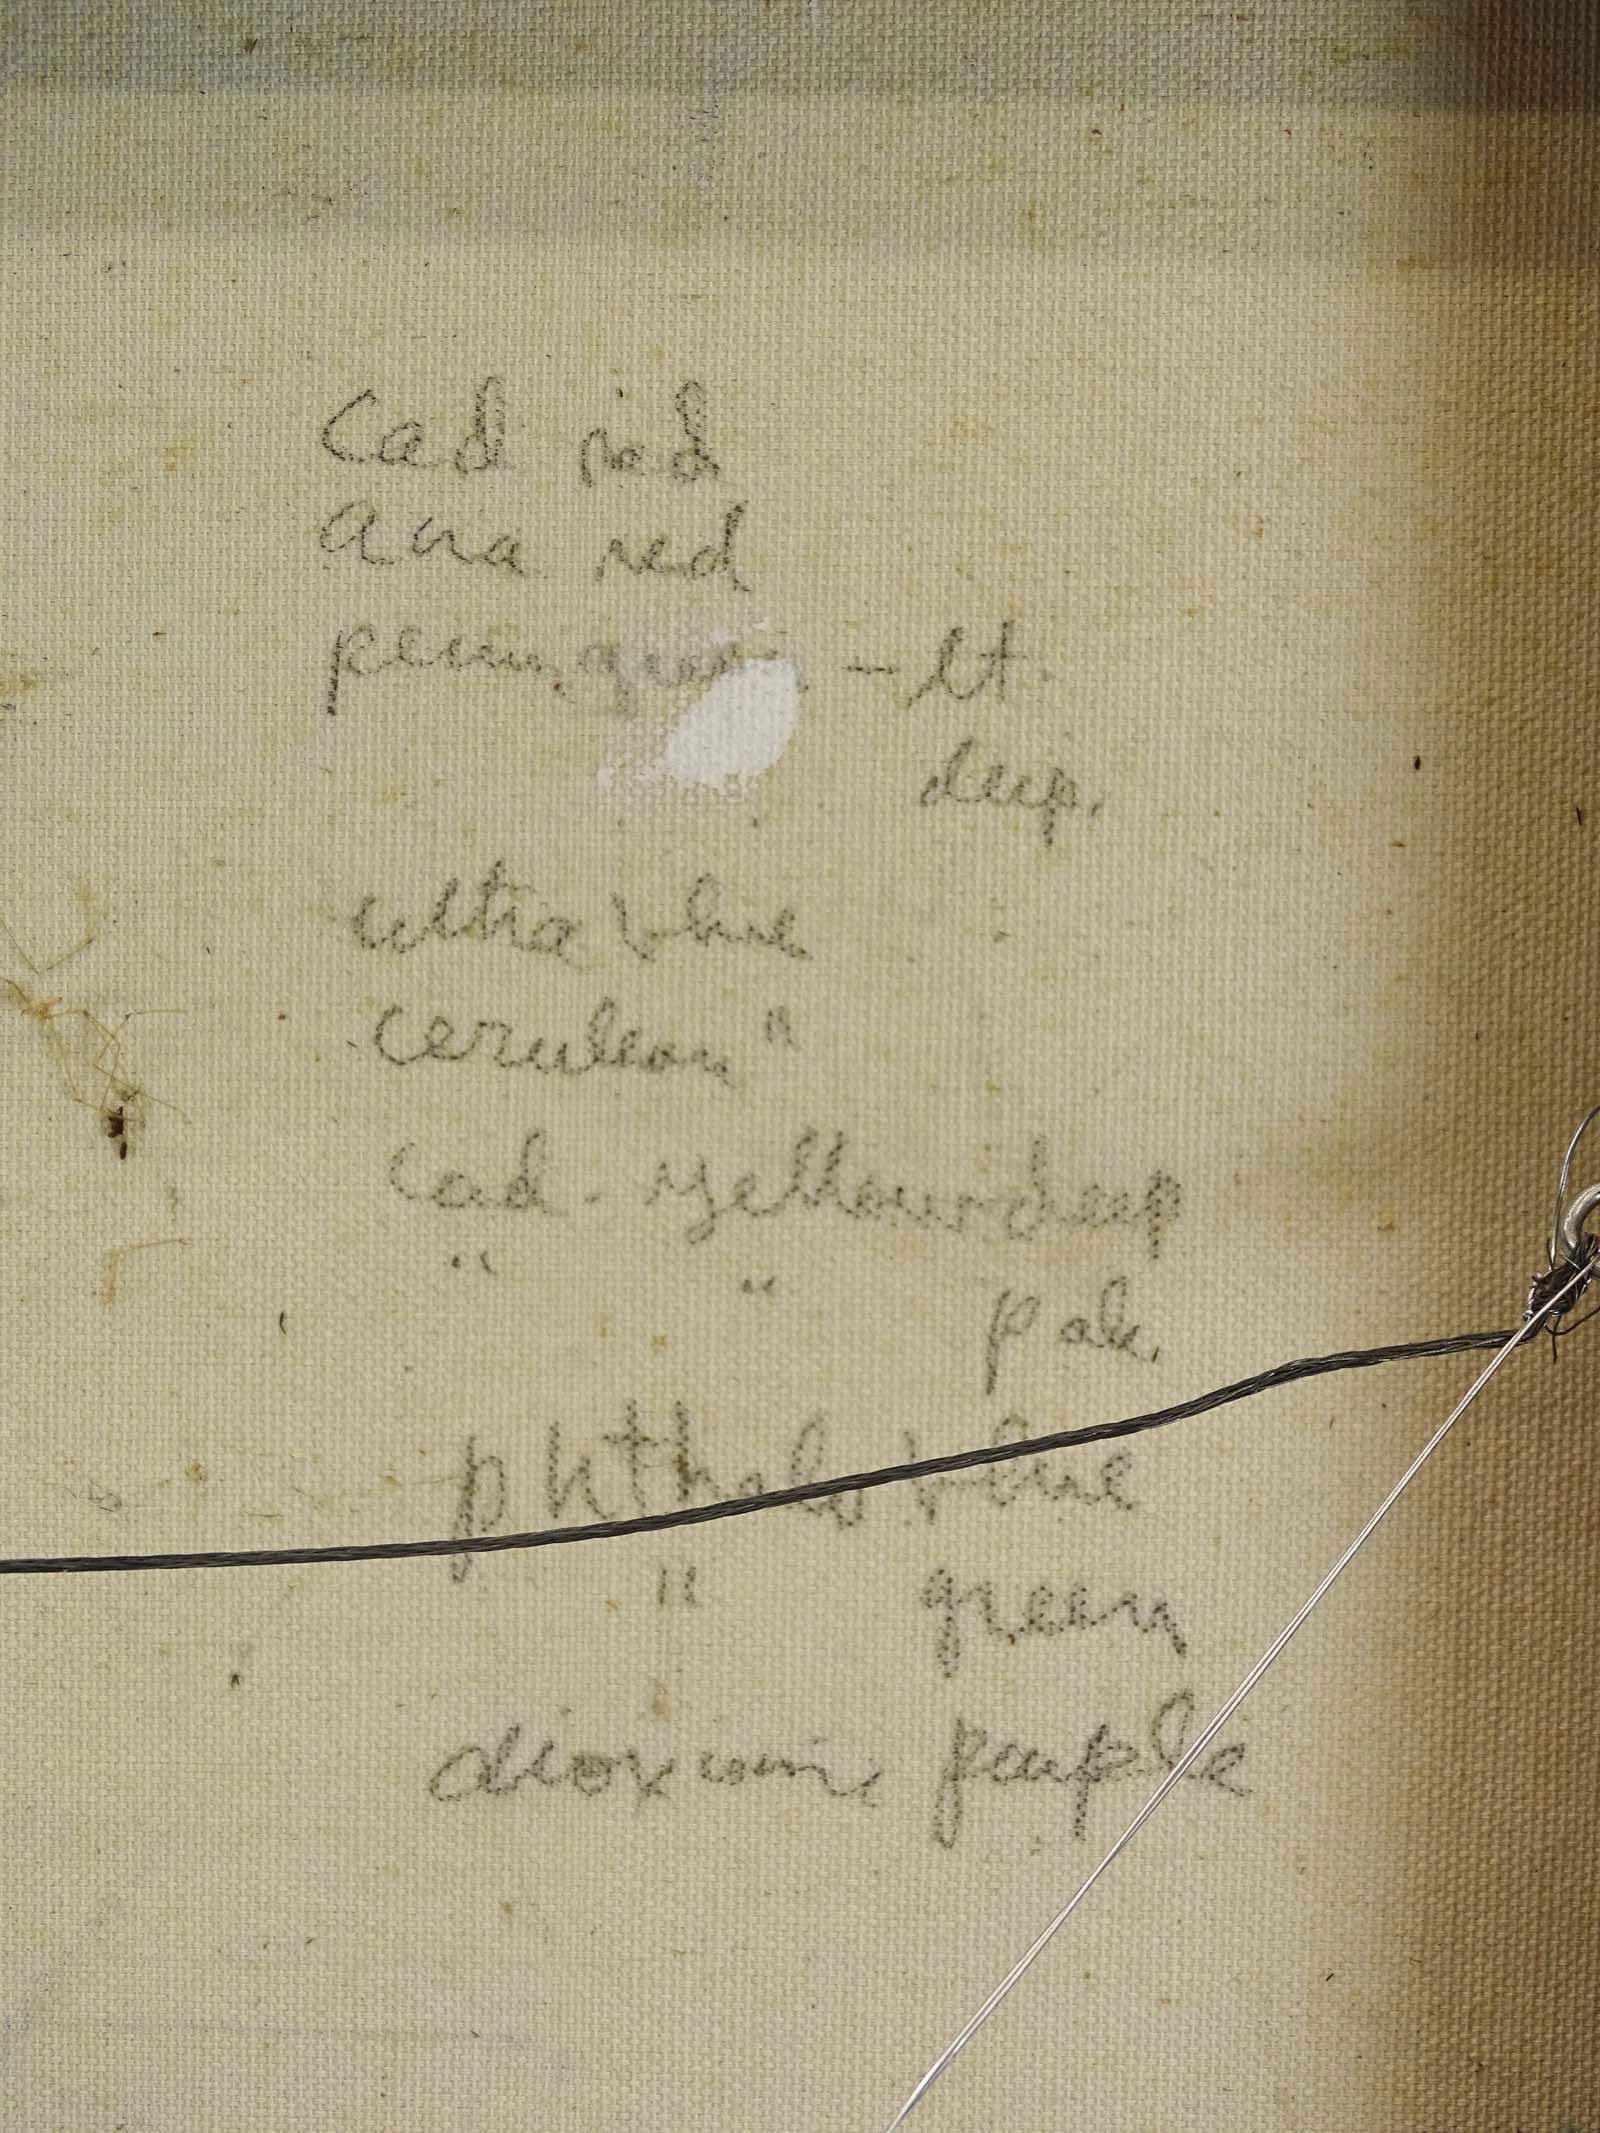 Cad red
Acra red
perm. green - lt.
deep.
ultra blue
cerulean "
Cad. yellow deep
" " pale.
phthalo blue
" green
dioxine purple